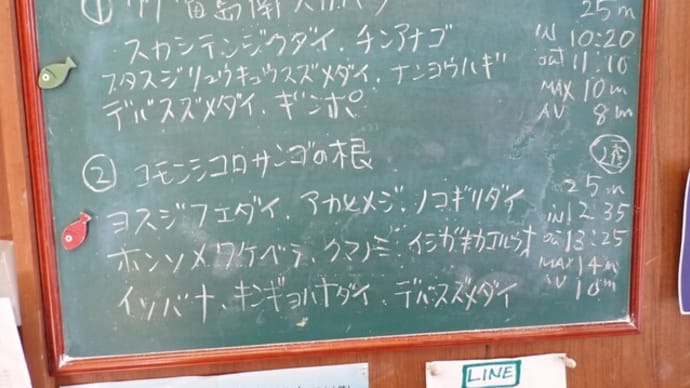 ① 富島南
25m
スカシテンジクダイ、チンアナゴ
IN 10:20
フタスジリュウキュウスズメダイ、ナンヨウハギ
out 11:10
MAX 10m
デバスズメダイ、ギンポ
AV 8m
② コモンシコロサンゴの根
25m
ヨスジフエダイ、アカヒメジ、ノコギリダイ
IN 12:35
ホンソメワケベラ、クマノミ、イシガキカエルウオ
out 13:25
MAX 14m
イソバナ、キンギョハナダイ、デバスズメダイ
AV 10m
LINE